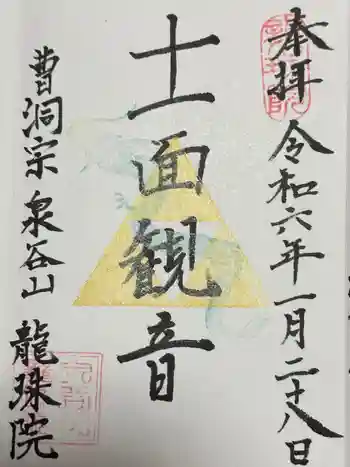 奉拝
令和六年一月二十八日
十一面観音
曹洞宗 泉谷山 龍珠院